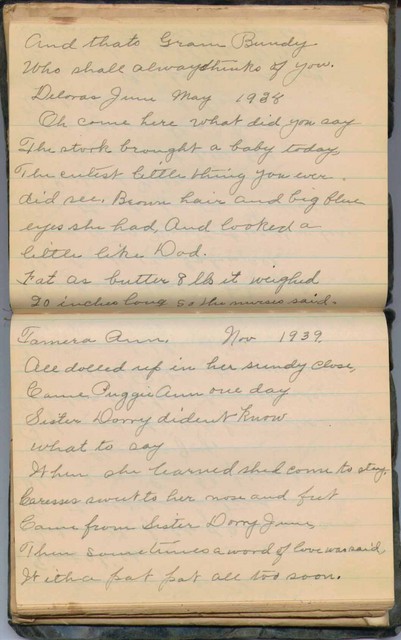 And thats Gram Bundy
Who shall alway thinks of you.
Deloras June May 1938
Oh come here what did you say
The stork brought a baby today,
The cutest little thing you ever
did see. Brown hair and big blue
eyes she had, And looked a
little like Dad.
Fat as butter 8 lbs it weighed
20 inches long so the nurses said.
Tamera Ann. Nov 1939.
All dolled up in her sundy close,
Came Puggie Ann one day
Sister Dorry dident know
what to say
When she learned shed come to stay.
Caresses sweet to her nose and feet
Came from Sister Dorry June,
Then sometimes a word of love was said
With a pat pat all too soon.